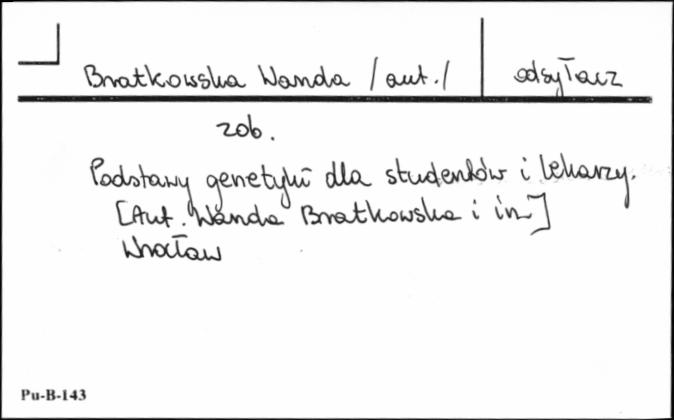 Bratkowska Wanda /aut./ odsyłacz
zob.
Podstawy genetyki dla studentów i lekarzy.
[Aut. Wanda Bratkowska i in]
Wrocław
Pu-B-143